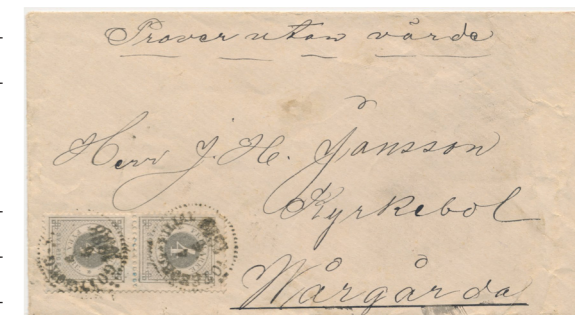 Prover utan värde
Herr J. H. Jansson
Kyrkebol
Wårgårda
4